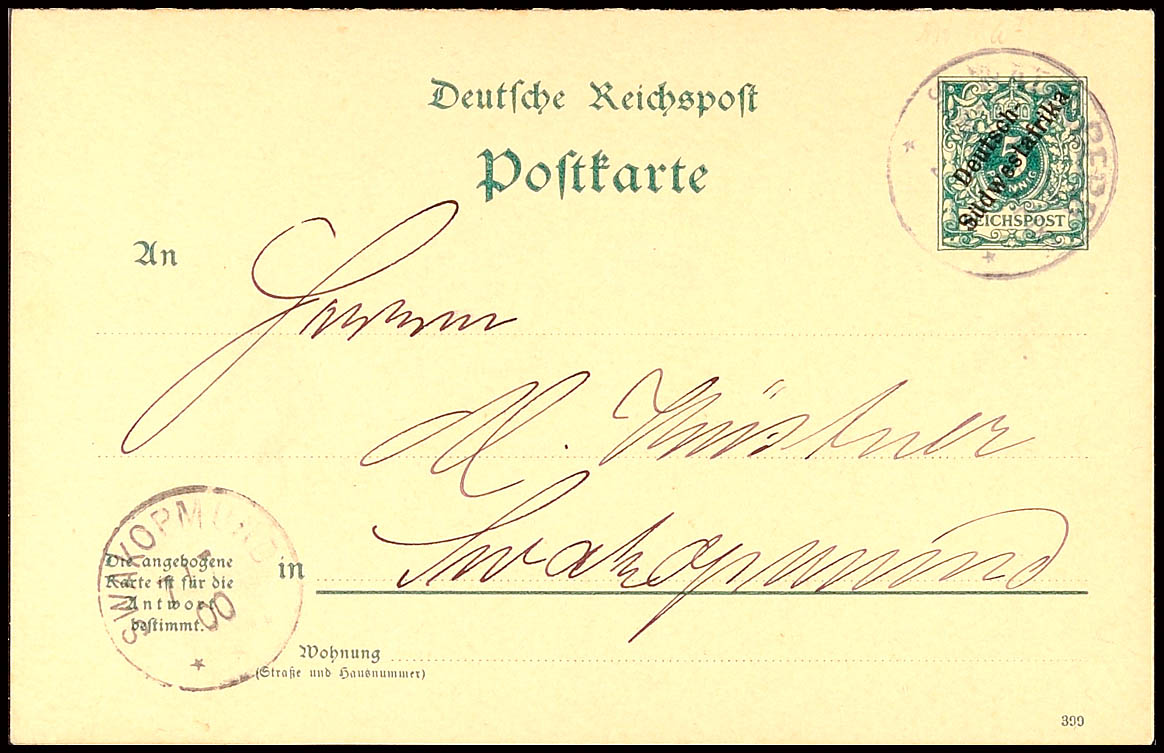 Deutsche Reichspost
Postkarte
Deutsch-
Südwestafrika
5
PFENNIG
REICHSPOST
An
Herrn
M. Küstner
in Swakopmund
SWAKOPMUND
00
Die angebogene
Karte ist für die
Antwort
bestimmt.
Wohnung
(Straße und Hausnummer)
399